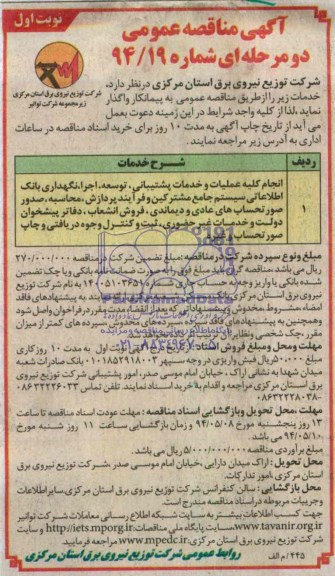 نوبت اول
آگهی مناقصه عمومی
دو مرحله ای شماره ۹۴/۱۹
شرکت توزیع نیروی برق استان مرکزی
زیرمجموعه شرکت توانیر
شرکت توزیع نیروی برق استان مرکزی درنظر دارد،
خدمات زیر را از طریق مناقصه عمومی به پیمانکار واگذار
نماید، لذا از کلیه واجد شرایط در این زمینه دعوت بعمل
می آید از تاریخ چاپ آگهی به مدت ۱۰ روز برای خرید اسناد مناقصه در ساعات
اداری به آدرس زیر مراجعه نمایند.
ردیف شـــرح خدمات
۱
انجام کلیه عملیات و خدمات پشتیبانی، توسعه، اجرا، نگهداری بانک
اطلاعاتی سیستم جامع مشترکین و فرآیند پردازش، محاسبه، صدور
صورتحساب های عادی و دیماندی، فروش انشعاب، دفاتر پیشخوان
دولت و خدمات غیر حضوری، ثبت و کنترل وجوه دریافتی و چاپ
صورتحساب
مبلغ و نوع سپرده شرکت در مناقصه: مبلغ تضمین شرکت در مناقصه ۲۷۰/۰۰۰/۰۰۰
ریال می باشد مناقصه گر باید مبلغ فوق را به صورت ضمانت نامه بانکی و یا چک تضمین
شده بانکی یا واریز وجه به حساب جاری به نام شرکت توزیع
نیروی برق استان مرکزی به پیشنهادهای فاقد
امضاء، مشروط، مخدوش و پیشنهاداتی که بعد از انقضاء مدت مقرر در فراخوان واصل شود
و همچنین به پیشنهادهای فاقد سپرده، سپرده های مخدوش، سپرده های کمتر از میزان
مقرر، چک شخصی و نظایر آن
مهلت و محل و مبلغ فروش اسناد: نوبت اول به مدت ۱۰ روز کاری
مبلغ ۵۰۰/۰۰۰ ریال فیش واریزی در وجه سپهر ۰۱۰۱۸۵۲۹۱۸۰۰۳ بانک صادرات شعبه
میدان شهدا به نشانی اراک، خیابان امام موسی صدر، امور پشتیبانی شرکت توزیع نیروی
برق استان مرکزی مراجعه و اقدام به خرید اسناد نمایند. تلفن تماس ۰۸۶۳۲۲۲۶۰۳۳
۰۸۶۳۲۲۲۸۰۳۸-
مهلت، محل تحویل و بازگشایی اسناد مناقصه: مهلت عودت اسناد مناقصه تا ساعت
۱۳ روز پنجشنبه مورخ ۹۴/۰۵/۰۸ و زمان بازگشایی ساعت ۱۱ روز شنبه مورخ
۹۴/۰۵/۱۰ می باشد.
مبلغ برآوردی مناقصه ۵/۰۰۰/۰۰۰/۰۰۰ ریال می باشد.
محل تحویل: اراک میدان دارایی، خیابان امام موسی صدر، شرکت توزیع نیروی برق
استان مرکزی، امور تدارکات.
محل بازگشایی: سالن کنفرانس شرکت توزیع نیروی برق استان مرکزی، سایر اطلاعات
و جزییات مربوطه در اسناد مناقصه مندرج است.
جهت کسب اطلاعات بیشتر به سایت شبکه اطلاع رسانی معاملات شرکت توانیر
www.tavanir.org.ir، سایت پایگاه ملی مناقصات http://iets.mporg.ir و سایت
شرکت توزیع نیروی برق استان مرکزی www.mpedc.ir مراجعه فرمایید
۲۴۵/م الف
روابط عمومی شرکت توزیع نیروی برق استان مرکزی